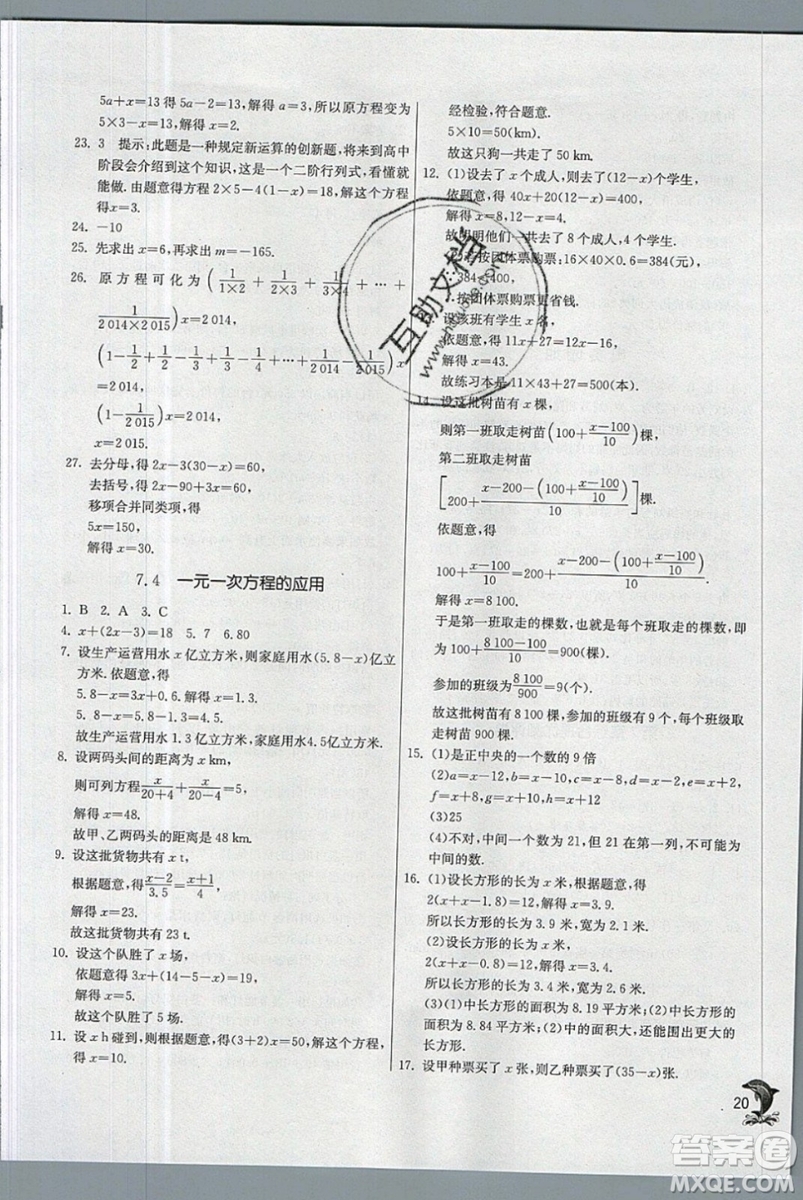 5a+x=13得5a-2=13,解得a=3,所以原方程变为
5×3-x=13,解得x=2.
23. 3 提示:此题是一种规定新运算的创新题,将来到高中
阶段会介绍到这个知识,这是一个二阶行列式,看懂就
能做.由题意得方程2×5-4(1-x)=18,解这个方程
得x=3.
24. -10
25. 先求出x=6,再求出m=-165.
26. 原方程可化为(1/(1×2)+1/(2×3)+1/(3×4)+…+
1/(2 014×2 015))x=2 014,
(1-1/2+1/2-1/3+…+1/2 014-1/2 015)x=
2 014,
(1-1/2 015)x=2 014,
x=2 015.
27. 去分母,得2x-3(30-x)=60,
去括号,得2x-90+3x=60,
移项合并同类项,得
5x=150,
解得x=30.
7.4 一元一次方程的应用
1. B 2. A 3. C
4. x+(2x-3)=18 5. 7 6. 80
7. 设生产运营用水x亿立方米,则家庭用水(5.8-x)亿
立方米.依题意,得
5.8-x=3x+0.6,解得x=1.3.
5.8-x=5.8-1.3=4.5.
故生产运营用水1.3亿立方米,家庭用水4.5亿立方米.
8. 设两码头间的距离为x km,
则可列方程x/(20+4)+x/(20-4)=5,
解得x=48.
故甲、乙两码头的距离是48 km.
9. 设这批货物共有x t,
根据题意,得(x-2)/3.5=(x+1)/4,
解得x=23.
故这批货物共有23 t.
10. 设这个队胜了x场,
依题意得3x+(14-5-x)=19,
解得x=5.
故这个队胜了5场.
11. 设x h碰到,则根据题意,得(3+2)x=50,解这个方程,
得x=10.
经检验,符合题意.
5×10=50(km).
故这只狗一共走了50 km.
12. (1)设去了x个成人,则去了(12-x)个学生,
依题意,得40x+20(12-x)=400,
解得x=8,12-x=4.
故明明他们一共去了8个成人,4个学生.
(2)若按团体票购票:16×40×0.6=384(元),
∵384<400,
∴按团体票购票更省钱.
设该班有学生x名,
依题意,得11x+27=12x-16,
解得x=43.
故练习本是11×43+27=500(本).
14. 设这批树苗有x棵,
则第一班取走树苗(100+(x-100)/10)棵,
第二班取走树苗
[200+(x-200-(100+(x-100)/10))/10]棵.
依题意,得
100+(x-100)/10=200+(x-200-(100+(x-100)/10))/10.
解得x=8 100.
于是第一班取走的棵数,也就是每个班取走的棵数,均
为100+(8 100-100)/10=900(棵).
参加的班级为8 100/900=9(个).
故这批树苗有8 100棵,参加的班级有9个,每个班取
走树苗900棵.
15. (1)是正中央的一个数的9倍
(2)a=x-12,b=x-10,c=x-8,d=x-2,e=x+2,
f=x+8,g=x+10,h=x+12
(3)25
(4)不对,中间一个数为21,但21在第一列,不可能为
中间的数.
16. (1)设长方形的长为x米,根据题意,得
2(x+x-1.8)=12,解得x=3.9.
所以长方形的长为3.9米,宽为2.1米.
(2)设长方形的长为x米,根据题意,得
2(x+x-0.8)=12,解得x=3.4.
所以长方形的长为3.4米,宽为2.6米.
(3)(1)中长方形的面积为8.19平方米;(2)中长方形的
面积为8.84平方米;(2)中的大,还能围出面积更大的
长方形.
17. 设甲种票买了x张,则乙种票买了(35-x)张.
20
互助文档
答案卷
MXQE.COM